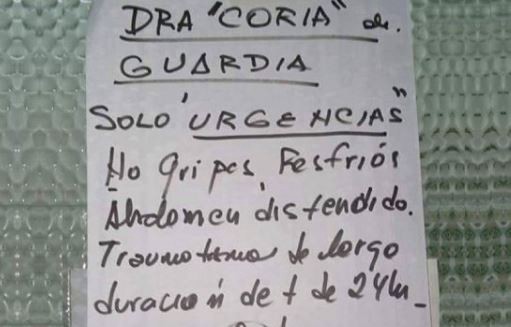 DRA "CORIA" de.
GUARDIA
SOLO 'URGENCIAS"
No Gripes, Resfriós
Abdomen distendido.
Traumatismo de largo
duración de + de 24hs_